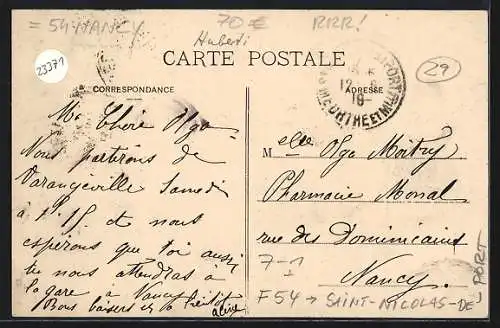 = 54 NANCY
70€
RRR!
Huberti
CARTE POSTALE
23371
29
CORRESPONDANCE
ADRESSE
12
19
MEURTHE ET M
Ma Chère Olga
Nous partirons de
Varangéville Samedi
à et nous
espérons que toi aussi
tu nous attendras à
la gare à Nancy
Bons baisers à bientôt
Melle Olga Moitry
Pharmacie Monal
rue des Dominicains
7-1
Nancy.
F54 → SAINT-NICOLAS-DE-PORT